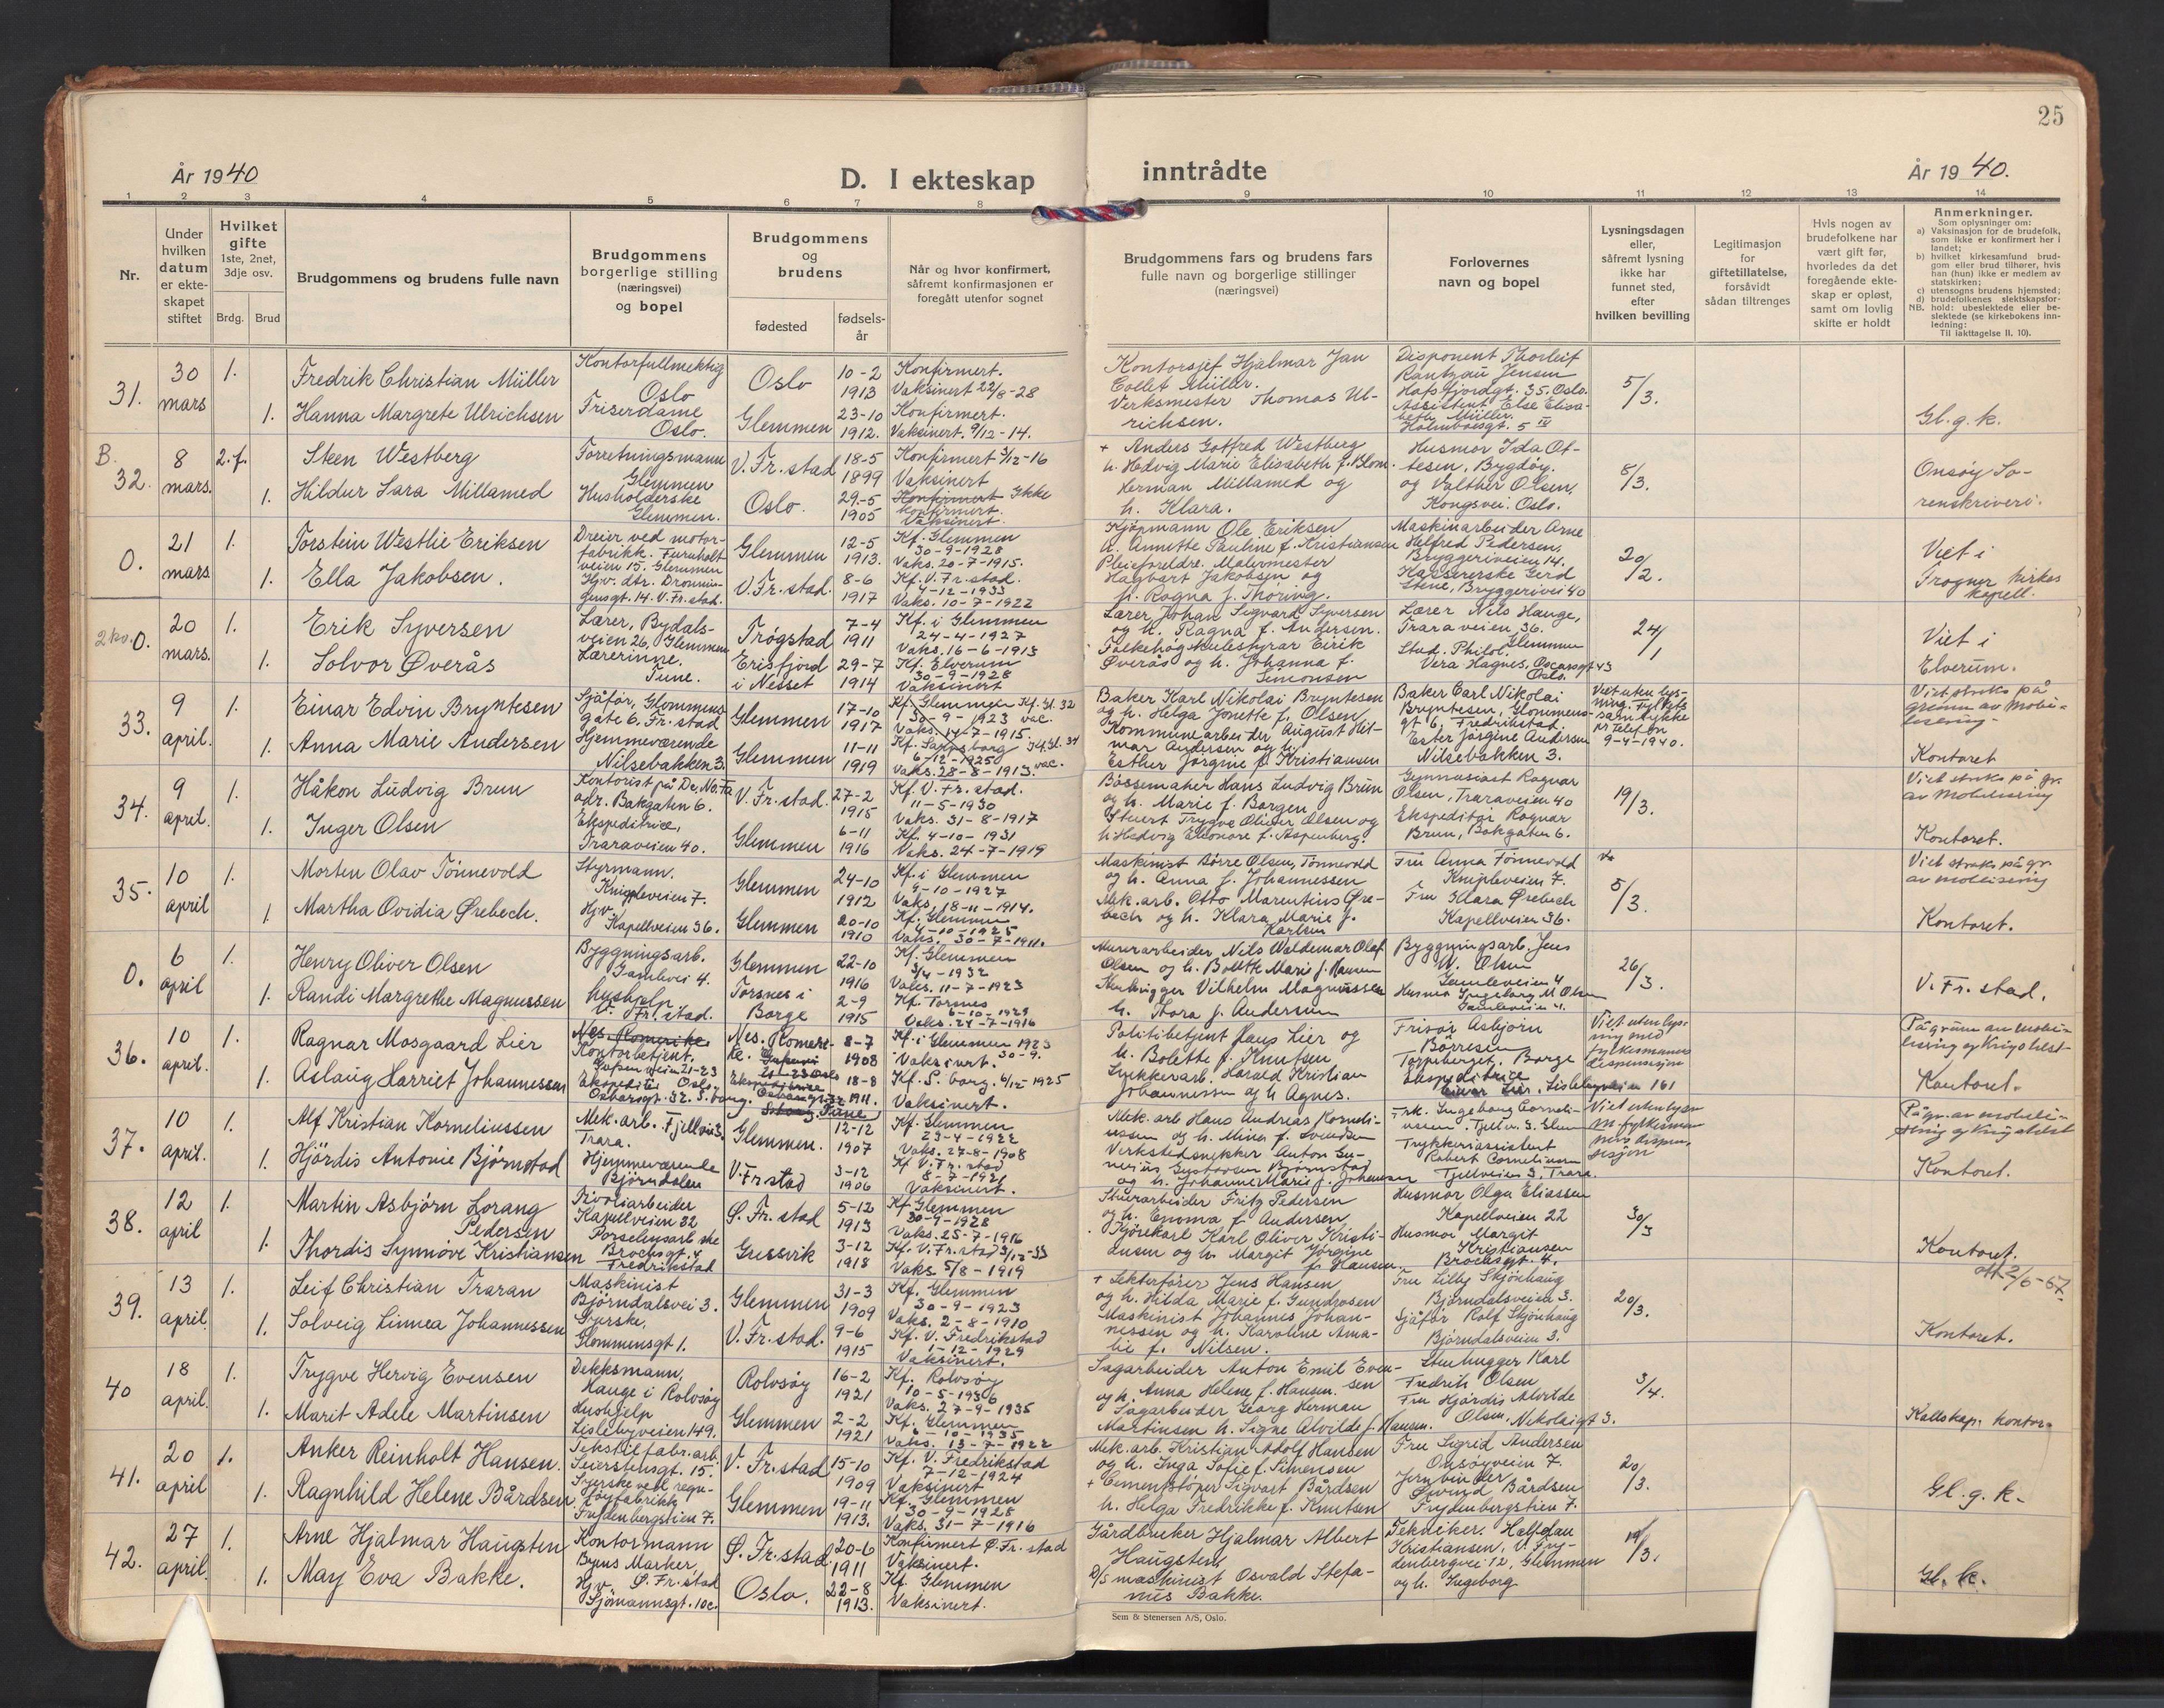 25
År 1940
D. I ekteskap
inntrådte
År 1940.
1 2 3 4 5 6 7 8 9 10 11 12 13 14
Nr.
Under hvilken datum er ekteskapet stiftet
Hvilket gifte 1ste, 2net, 3dje osv.
Brdg. Brud
Brudgommens og brudens fulle navn
Brudgommens borgerlige stilling (næringsvei) og bopel
Brudgommens og brudens
fødested
fødselsår
Når og hvor konfirmert, såfremt konfirmasjonen er foregått utenfor sognet
Brudgommens fars og brudens fars fulle navn og borgerlige stillinger (næringsvei)
Forlovernes navn og bopel
Lysningsdagen eller, såfremt lysning ikke har funnet sted, efter hvilken bevilling
Legitimasjon for giftetillatelse, forsåvidt sådan tiltrenges
Hvis nogen av brudefolkene har vært gift før, hvorledes da det foregående ekteskap er opløst, samt om lovlig skifte er holdt
Anmerkninger.
Som oplysninger om:
a) Vaksinasjon for de brudefolk, som ikke er konfirmert her i landet;
b) hvilket kirkesamfund brudgom eller brud tilhører, hvis han (hun) ikke er medlem av statskirken;
c) utensogns brudens hjemsted;
d) brudefolkenes slektskapsforhold: ubeslektede eller beslektede (se kirkebokens innledning:
NB.
Til iakttagelse II. 10).
31. 30 mars 1. Fredrik Christian Müller
Kontorfullmektig Oslo
Oslo 10-2 1913
Konfirmert. Vaksinert 22/8-28
Kontorsjef Hjalmar Jan Collet Müller.
Disponent Thorleif Rantzau Jensen Hafsfjordgt. 35. Oslo.
5/3.
1. Hanna Margrete Ulrichsen
Friserdame Oslo.
Glemmen 23-10 1912.
Konfirmert. Vaksinert. 9/12-14.
Verksmester Thomas Ulrichsen.
Assistent Else Elisabeth Müller. Holmboesgt. 5 IV
Gl. g. k.
B. 32. 8 mars. 2. f. Sten Westberg
Forretningsmann Glemmen
V. Fr. stad 18-5 1899
Konfirmert 3/12-16 Vaksinert
+ Anders Gotfred Westberg h. Hedvig Marie Elisabeth f. Blom.
Husmor Ida Ottesen, Bygdøy.
8/3.
1. Hildur Sara Millamed
Husholderske Glemmen.
Oslo. 29-5 1905
Konfirmert Ikke konfirmert. Vaksinert.
Herman Millamed og h. Klara.
og Valther Olsen, Kongsvei. Oslo.
Onsøy Sorenskriveri.
0. 21 mars 1. Torstein Westlie Eriksen
Dreier ved motorfabrikk. Furuholtveien 15. Glemmen
Glemmen 12-5 1913.
Kf. Glemmen 30-9-1928 Vaks. 20-7-1915.
Kjøpmann Ole Eriksen h. Annette Pauline f. Kristiansen
Maskinarbeider Arne Helfred Pedersen, Bryggeriveien 14.
20/2.
1. Ella Jakobsen.
Hjv. dtr. Dronningensgt. 14. V. Fr. stad.
V. Fr. stad. 8-6 1917
Kf. V. Fr. stad. 4-12-1933 Vaks. 10-7-1922
Pleieforeldre. Malermester Hagbart Jakobsen og h. Ragna f. Thoring.
Kassererske Gerd Stene, Bryggerivei 40
Viet i Frogner kirkes kapell.
2kv. 0. 20 mars. 1. Erik Syversen
Lærer, Bydalsveien 26, Glemmen
Trøgstad 7-4 1911
Kf. i Glemmen 24-4-1927 Vaks. 16-6-1913
Lærer Johan Sigvard Syversen og h. Ragna f. Andersen.
Lærer Nils Hauge, Traraveien 36. Glemmen
24/1
1. Solvor Øverås
Lærerinne. Tune.
Erisfjord i Nesset 29-7 1914
Kf. Elverum 30-9-1928 Vaksinert
Folkehøgskulestyrar Eirik Øverås og h. Johanna f. Simonsen
Stud. Philol. Vera Hagnes, Oscarsgt 43 Oslo.
Viet i Elverum.
33. 9 april. 1. Einar Edvin Bryntesen
Sjåfør, Glommensgate 6. Fr. stad
Glemmen 17-10 1917
Kf. Glemmen Kf. Gl. 32 30-9-1923 vac. Vaks. 14-7-1915.
Baker Karl Nikolai Bryntesen og h. Helga Jonette f. Olsen
Baker Carl Nikolai Bryntesen, Glommensgt 6, Fredrikstad
Viet uten lysning. Fylkets samtykke pr telefon 9-4-1940.
Viet straks på grunn av mobilisering.
1. Anna Marie Andersen
Hjemmeværende Nilsebakken 3.
Glemmen 11-11 1919
Kf. Sarpsborg Kf. Gl. 34 6/12-1925 vac. Vaks. 28-8-1913.
Kommunearbeider August Hilmar Andersen og h. Esther Jørgine f. Kristiansen
Ester Jørgine Andersen Nilsebakken 3.
Kontoret
34. 9 april. 1. Håkon Ludvig Brun
Kontorist på De-No-Fa adr. Bakgaten 6.
V. Fr. stad. 27-2 1915
Kf. V. Fr. stad. 11-5-1930 Vaks. 31-8-1917
Bøssemaker Hans Ludvig Brun og h. Marie f. Borgen
Gymnasiast Ragnar Olsen, Traraveien 40
19/3.
Viet straks på gr. av mobilisering
1. Inger Olsen
Ekspeditrice, Traraveien 40.
Glemmen 6-11 1916
Kf. 4-10-1931 Vaks. 24-7-1919
Stuert Trygve Oliver Olsen og h. Hedvig Eleonore f. Aspenberg.
Ekspeditør Ragnar Brun, Bakgaten 6.
Kontoret.
35. 10 april 1. Morten Olav Tønnevold
Styrmann. Knippleveien 7.
Glemmen 24-10 1912
Kf. i Glemmen 9-10-1927 Vaks. 18-11-1914.
Maskinist Børre Olsen, Tønnevold og h. Anna f. Johannessen
Fru Anna Tønnevold Knipleveien 7.
5/3.
Viet straks på gr. av mobilisering
1. Martha Ovidia Ørebech.
Hjv. Kapellveien 36.
Glemmen 20-10 1910
Kf. Glemmen 4-10-1925 Vaks. 30-7-1911.
Mek. arb. Otto Marentius Ørebech og h. Klara Marie f. Karlsen
Fru Klara Ørebech Kapellveien 36.
Kontoret.
0. 6 april 1. Henry Oliver Olsen
Byggningsarb. Gamlevei 4.
Glemmen 22-10 1916
Kf. Glemmen 3/4-1932 Vaks. 11-7-1923
Murerarbeider Nils Waldemar Olaf Olsen og h. Bolette Marie f. Hansen
Byggningsarb. Jens W. Olsen Gamleveien 4
26/3.
1. Randi Margrethe Magnussen
hushjelp V. Fr. stad.
Torsnes i Borge 2-9 1915
Kf. Torsnes 6-10-1929 Vaks. 24-7-1916
Stenhugger Vilhelm Magnussen h. Thora f. Andersen
Husmor Ingeborg M. Olsen Gamleveien 4.
V. Fr. stad.
36. 10 april 1. Ragnar Mosgaard Lier
Nes. Romerike. Kontorbetjent.
Nes. Romerike. 8-7 1908
Kf. i Glemmen 1923 Vaksinert. 30-9.
Politibetjent Jens Lier og h. Bolette f. Knutsen
Frisør Asbjørn Børresen Torpeberget, Borge
Viet uten lysning med fylkesmannens dispensasjon
På grunn av mobilisering og krigstilst-
1. Aslaug Harriet Johannessen
18-8 1911.
Kf. S. borg. 6/12-1925 Vaksinert.
Lykkerarb. Harald Kristian Johannessen og h Agnes.
Ekspeditrice Lier. Lislebyveien 161
Kontoret.
37. 10 april. 1. Alf Kristian Korneliussen
Mek. arb. Fjellvn 3. Trara.
Glemmen. 12-12 1907
Kf. Glemmen 23-4-1922 Vaks. 27-8-1908
Mek. arb Hans Andreas Korneliussen og h. Mina f. Svendsen
Frk. Ingeborg Corneliussen.
Viet uten lysn m. fylkesmannens dispensasjon
På gr. av mobilisering og krigstilst
1. Hjördis Antonie Bjørnstad
Hjemmeværende Björndalen
V. Fr. stad 3-12 1906
Kf V. Fr. stad 8-7-1921 Vaksinert.
Verkstedsnekker Anton Severius Gustavsen Bjørnstad og h. Johanne Marie f. Johansen
Trykkeriassistent Robert Corneliussen Fjellveien 3, Trara.
Kontoret.
38. 12 april 1. Martin Asbjørn Lorang Pedersen
Tivoliarbeider Kapellveien 22
Ø. Fr. stad 5-12 1913
Kf. Glemmen 30-9-1928 Vaks. 25-7-1916
Stuerarbeider Fritz Pedersen og h. Emma f. Andersen
Husmor Olga Eliassen Kapellveien 22
30/3
1. Thordis Synnöve Kristiansen
Porselensarb.ske Brochsgt. 4 Fredrikstad
Gressvik 3-12 1918
Kf. V. Fr. stad 3/12-33 Vaks 5/8-1919
Kjørekarl Karl Oliver Kristiansen og h. Margit Jørgine f. Hansen.
Husmor Margit Kristiansen Brochsgt. 4.
Kontoret.
att 2/6-67.
39. 13 april. 1. Leif Christian Traran
Maskinist Bjørndalsvei 3.
Glemmen 31-3 1909
Kf. Glemmen 30-9-1923 Vaks. 2-8-1910
+ Lekterfører Jens Hansen og h. Hilda Marie f. Gundrosen
Fru Lilly Skjönhaug Bjørndalsveien 3.
20/3.
1. Solveig Linnea Johannessen
Syerske, Glommensgt 1.
V. Fr. stad. 9-6 1915
Kf. V. Fredrikstad 1-12-1929 Vaksinert.
Maskinist Johannes Johannessen og h. Karoline Amalie f. Nilsen.
Sjåfør Rolf Skjönhaug Bjørndalsveien 3.
Kontoret.
40 18 april. 1. Trygve Hervig Evensen
Dekksmann, Hauge i Rolvsøy
Rolvsøy 16-2 1921
Kf. Rolvsøy 10-5-1936 Vaks. 27-9-1935
Sagarbeider Anton Emil Evensen og h. Anna Helene f. Hansen.
Stenhugger Karl Fredrik Olsen
3/4.
1. Marit Adele Martinsen
Hushjelp Lislebyveien 149.
Glemmen 2-2 1921
Kf. Glemmen 6-10-1935 Vaks. 13-7-1922
Sagarbeider Georg Herman Martinsen h. Signe Alvilde f. Hansen.
Fru Hjördis Alvilde Olsen, Nikolaigt 3.
41. 20 april 1. Anker Reinholt Hansen.
Tekstilfabr. arb. Seierstensgt. 15.
V. Fr. stad 15-10 1909
Kf. V. Fredrikstad 7-12-1924 Vaksinert
Mek. arb. Kristian Adolf Hansen og h. Inga Sofie f. Simensen
Fru Sigrid Andersen Onsøyveien 7.
20/3.
1. Ragnhild Helene Bårdsen
Syerske ved regntøyfabrikk Frydenbergstien 7.
Glemmen 19-11 1913.
Kf. Glemmen 30-9-1928 Vaks. 31-7-1916
+ Cementstøper Sigvart Bårdsen h. Helga Fredrikke f. Knutsen
Jernbinder Øivind Bårdsen Frydenbergstien 7.
Gl. g. k.
42. 27 april. 1. Arne Hjalmar Haugsten
Kontormann Byens Marker, Ø. Fr. stad
Ø. Fr. stad 20-6 1911
Konfirmert Ø. Fr. stad Vaksinert.
Gårdbruker Hjalmar Albert Haugsten
Tekniker. Halfdan Kristiansen, V. Frydenbergvei 12, Glemmen
19/3.
1. May Eva Bakke.
Hjv. Sjömannsgt. 10c.
Oslo. 22-8 1913.
Kf. Glemmen Vaksinert.
D/S maskinist Osvald Stefanus Bakke.
og h. Ingeborg
Gl. k.
Sem & Stenersen A/S, Oslo.